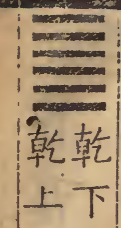 乾下
乾上